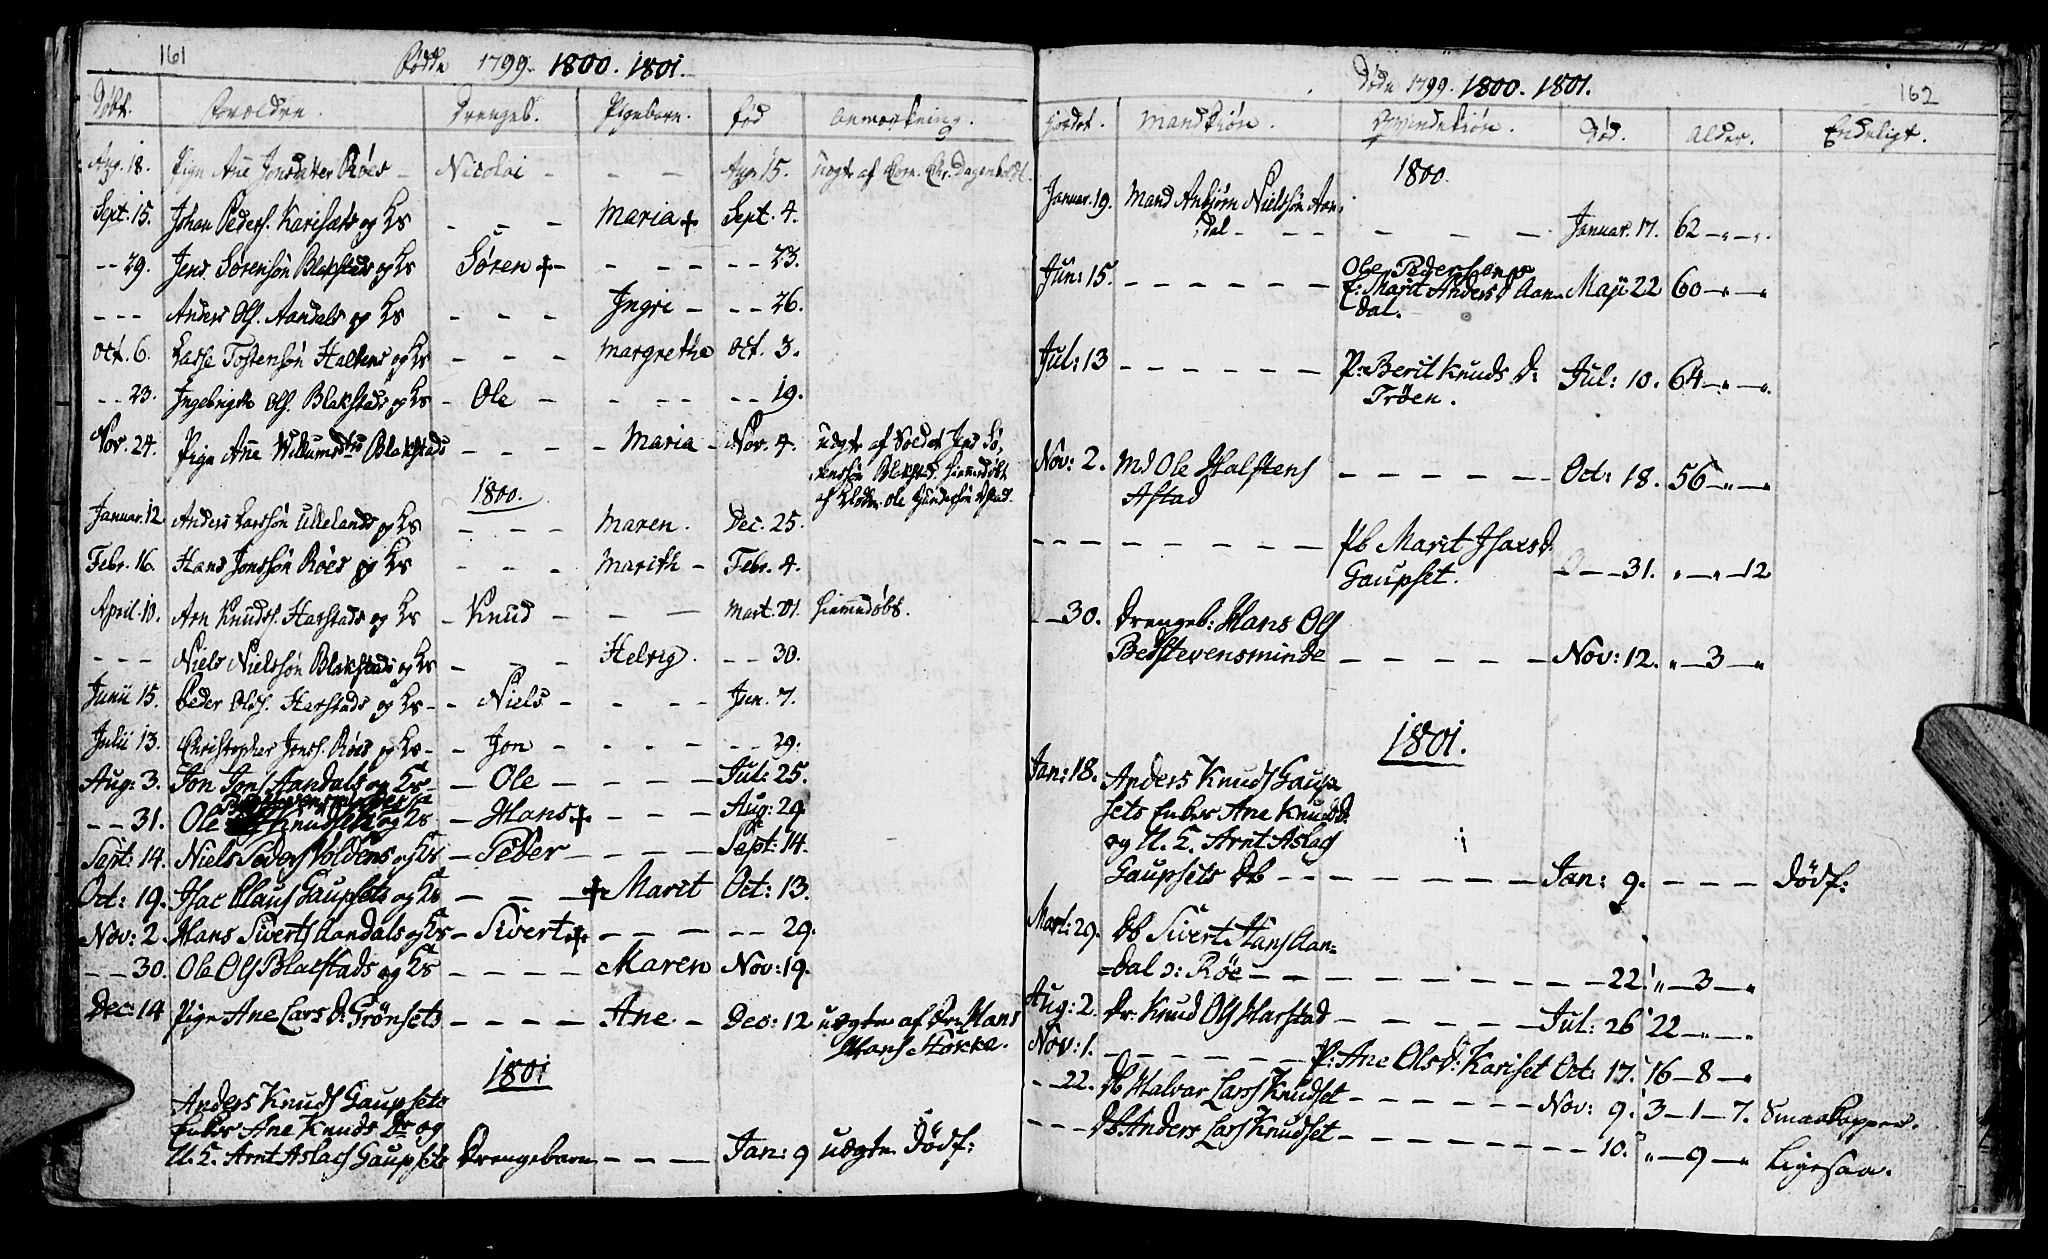 161
Fødde 1799. 1800. 1801.
Døbt. Forældre. Drengeb. Pigebarn. fød Anmærkning.
Aug. 18. Pige Ane Jonsdatter Røes - Nicolai - - - Aug. 15. uægte af
Sept. 15. Johan Peders. Karisæts og Hs - - - Maria + Sept. 4.
- - 29. Jens Sørensøn Blakstads og Hs Søren + - - - - - - 23.
- - - Anders Ols. Aandals og Hs - - - Ingri - - - 26.
Oct. 6. Lasse Tostensøn Halkens og Hs - - - Margrethe Oct. 3.
- - 23. Ingebrigt Ols. Blakstads og Hs - Ole - - - - - - 19.
Nov. 24. Pige Ane Willumsdtr Blakstads - - - - Maria - Nov. 4. uægte af Soldat Jens Sø-
rensøn Blakstad. hiemedøbt
af Ole Gundersøn Ustad
1800.
Januar. 12 Anders Larssøn Ullelands og Hs - - - Maren. Dec. 25.
Febr. 16. Hans Jonssøn Røes og Hs - - - Marith - Febr. 4.
April. 10. Arn Knuds. Harstads og Hs - Knud - - - Mart. 21. hiemedøbt.
- - - Niels Nielssøn Blakstads og Hs - - - Helvig. - - 30.
Junii 15. Peder Olds. Harstads og Hs - - Niels - - - - Jun. 7.
Julii 13. Christopher Jonss. Røes og Hs - - Jon - - - - - - 29.
Aug: 3. Jon Jons Aandals og Hs - - Ole - - - - Jul: 25.
- - 31. Ole Knudsets og Hs - Hans + - - - Aug: 29
Sept: 14. Niels Peders Voldens og Hs - Peder - - - - Sept: 14.
Oct: 19. Isac Claus Gaupsets og Hs - - - + Marit Oct: 13.
Nov: 2 Hans Siverts Aandals og Hs - Sivert + - - - - - 29.
- - 30. Ole Ols Blakstads og Hs - - - - Maren Nov: 19.
Dec: 14 Pige Ane Lars D: Grønsets - - - - Ane - Dec: 12 uægte af Dr: Hans
Hans Stokke.
1801
Anders Knuds Gaupsets
Enkes Ane Knuds Dr og
U. K. Arnt Aslacs Gaupsets Drengebarn - - - Jan: 9 uægte Dødf:
162
Døde 1799. 1800. 1801.
Jordet. Mandkiøn. Qvindekiøn. Død. Alder. Endeligt.
1800.
Januar. 19. Mand Anbiørn Nielssøn Aan-
dal - - - - - - Januar. 17. 62 - „ - „.
Jun: 15. - - - - - - Ole Pedersens
E: Marit Anders D Aan-
dal. Maji 22 60 - „ - „
Jul: 13 - - - - - - P: Berit Knuds D:
Trøen. Jul: 10. 64 - „ - „.
Nov: 2. Md Ole Halstens
Astad - - - - - Oct: 18. 56 - „ - „
- - - - - - - - - Pb Marit Isacs D.
Gaupset. - - 31. „ - „ - 12
- - 30. Drengeb: Hans Ols
Bedstevensminde - - - - - Nov: 12. „ - 3 - „
1801.
Jan: 18. Anders Knuds Gaup-
sets Enkes Ane Knuds D.
og U. K. Arnt Aslacs
Gaupsets Db - - - - - - - Jan: 9. - - - Dødf:
Mart: 29. Db Sivert Hans Aan-
dal o: Røe - - - - - - - - 22. „ - 3 - „
Aug: 2. Dr. Knud Ols Harstad - - - - - Jul: 26 22 - „ - „
Nov: 1. - - - - - - P: Ane Olsd: Kariset Oct: 17. 16 - 8 - „
- - 22. Db Halvar Lars Knudset - - - - - Nov: 9. 3 - 1 - 7. Smaakopper.
- - - Db: Anders Lars Knudset - - - - - - - 10. „ - 9 - „ Ligesaa.